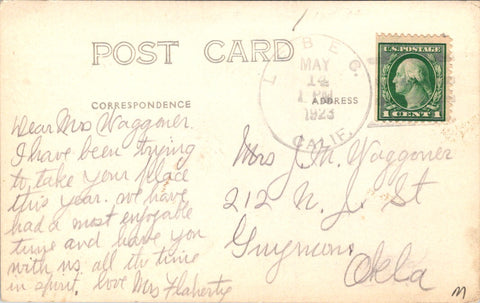 POST CARD
LEBEC
MAY
14
1 PM
1923
CALIF.
U.S. POSTAGE
1 CENT 1
CORRESPONDENCE
ADDRESS
Dear Mrs Waggoner.
I have been trying
to take your place
this year. we have
had a most enjoyable
time and have you
with us all the time
in spirit. love Mrs Flaherty
Mrs J. M. Waggoner
212 N. J. St
Guymon
Okla